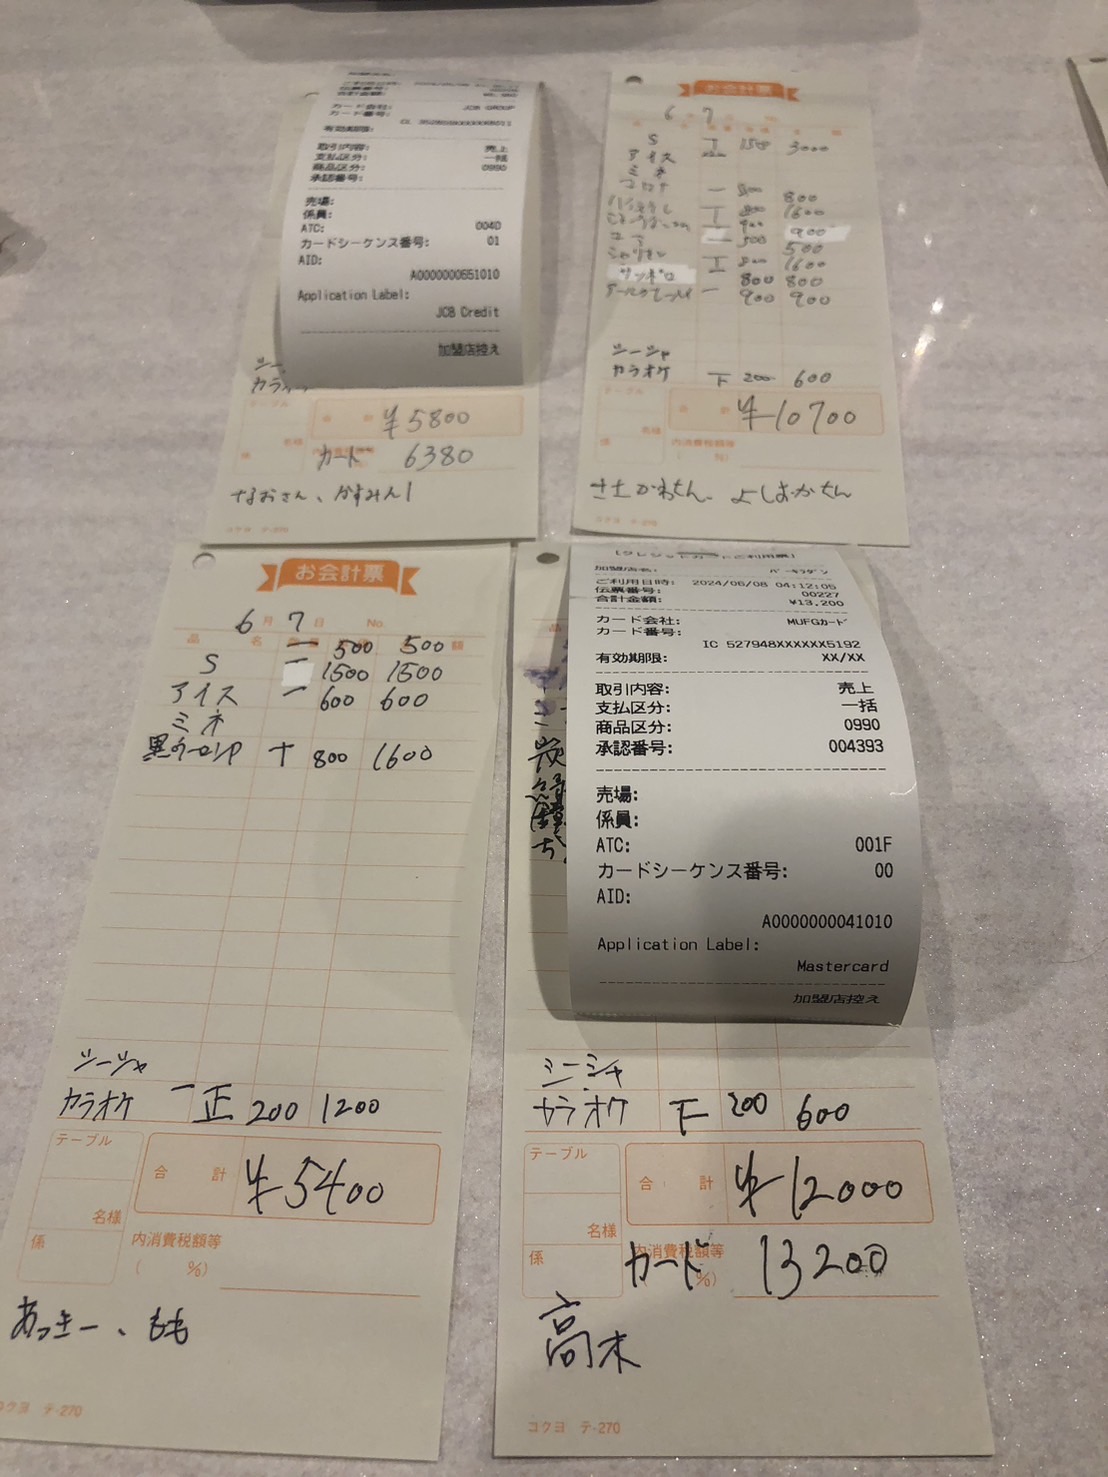 カード会社: JCB GROUP
カード番号:
有効期限:
取引内容: 売上
支払区分: 一括
商品区分: 0990
承認番号:
売場:
係員:
ATC: 004D
カードシーケンス番号: 01
AID:
A0000000651010
Application Label:
JCB Credit
加盟店控え
カラオ
テーブル
合 計 ¥5800
名様
係
カード 6380
なおさん、かすみん!
コクヨ テ-270
お会計票
6 7
S 丅 1500 3000
アイス
ミネ
コロナ 一 800 800
丅 800 1600
一 900 900
一 500 500
丅 800 1600
800 800
一 900 900
シーシャ
カラオケ 下 200 600
テーブル
合 計 ¥10700
名様
係 内消費税額等
( %)
コクヨ テ-270
お会計票
6月 7日 No.
品 名 一 500 500 額
S 一 1500 1500
アイス 一 600 600
ミネ
黒ウーロンP 丅 800 1600
シーシャ
カラオケ 一正 200 1200
テーブル
合 計 ¥5400
名様
係 内消費税額等
( %)
あっきー、もも
コクヨ テ-270
[クレジットカードご利用票]
加盟店名:
ご利用日時: 2024/06/08 04:12:05
伝票番号: 00227
合計金額: ¥13,200
カード会社: MUFGカード
カード番号:
IC 527948XXXXXX5192
有効期限: XX/XX
取引内容: 売上
支払区分: 一括
商品区分: 0990
承認番号: 004393
売場:
係員:
ATC: 001F
カードシーケンス番号: 00
AID:
A0000000041010
Application Label:
Mastercard
加盟店控え
シーシャ
カラオケ 下 200 600
テーブル
合 計 ¥12000
名様
係 内消費税額等
カード 13200
( %)
高木
コクヨ テ-270